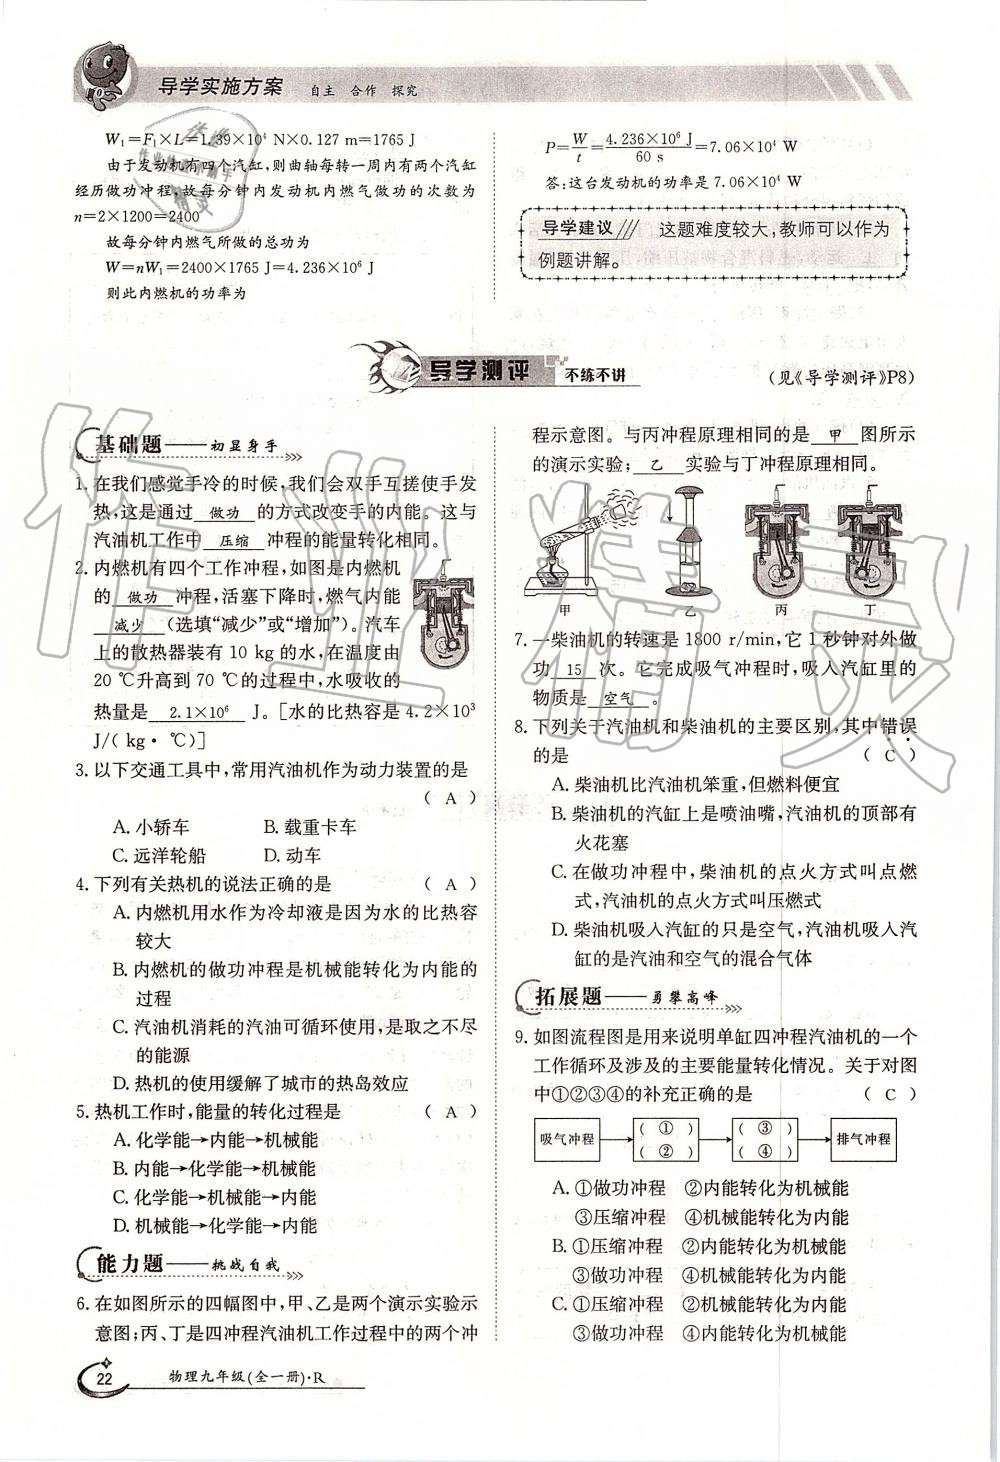 导学实施方案 自主 合作 探究
W₁=F₁×L=1.39×10⁴ N×0.127 m=1765 J
由于发动机有四个汽缸,则曲轴每转一周内有两个汽缸
经历做功冲程,故每分钟内发动机内燃气做功的次数为
n=2×1200=2400
故每分钟内燃气所做的总功为
W=nW₁=2400×1765 J=4.236×10⁶ J
则此内燃机的功率为
P=W/t=4.236×10⁶ J/60 s=7.06×10⁴ W
答:这台发动机的功率是7.06×10⁴ W
导学建议 这题难度较大,教师可以作为
例题讲解。
导学测评 不练不讲
(见《导学测评》P8)
基础题——初显身手
1. 在我们感觉手冷的时候,我们会双手互搓使手发
热,这是通过 做功 的方式改变手的内能。这与
汽油机工作中 压缩 冲程的能量转化相同。
2. 内燃机有四个工作冲程,如图是内燃机
的 做功 冲程,活塞下降时,燃气内能
减少 (选填“减少”或“增加”)。汽车
上的散热器装有 10 kg 的水,在温度由
20 ℃升高到 70 ℃的过程中,水吸收的
热量是 2.1×10⁶ J。[水的比热容是 4.2×10³
J/(kg·℃)]
3. 以下交通工具中,常用汽油机作为动力装置的是
( A )
A. 小轿车 B. 载重卡车
C. 远洋轮船 D. 动车
4. 下列有关热机的说法正确的是 ( A )
A. 内燃机用水作为冷却液是因为水的比热容
较大
B. 内燃机的做功冲程是机械能转化为内能的
过程
C. 汽油机消耗的汽油可循环使用,是取之不尽
的能源
D. 热机的使用缓解了城市的热岛效应
5. 热机工作时,能量的转化过程是 ( A )
A. 化学能→内能→机械能
B. 内能→化学能→机械能
C. 化学能→机械能→内能
D. 机械能→化学能→内能
能力题——挑战自我
6. 在如图所示的四幅图中,甲、乙是两个演示实验示
意图;丙、丁是四冲程汽油机工作过程中的两个冲
程示意图。与丙冲程原理相同的是 甲 图所示
的演示实验; 乙 实验与丁冲程原理相同。
甲 乙 丙 丁
7. 一柴油机的转速是 1800 r/min,它 1 秒钟对外做
功 15 次。它完成吸气冲程时,吸入汽缸里的
物质是 空气 。
8. 下列关于汽油机和柴油机的主要区别,其中错误
的是 ( C )
A. 柴油机比汽油机笨重,但燃料便宜
B. 柴油机的汽缸上是喷油嘴,汽油机的顶部有
火花塞
C. 在做功冲程中,柴油机的点火方式叫点燃
式,汽油机的点火方式叫压燃式
D. 柴油机吸入汽缸的只是空气,汽油机吸入汽
缸的是汽油和空气的混合气体
拓展题——勇攀高峰
9. 如图流程图是用来说明单缸四冲程汽油机的一个
工作循环及涉及的主要能量转化情况。关于对图
中①②③④的补充正确的是 ( C )
吸气冲程 ( ① ) ( ③ ) 排气冲程
( ② ) ( ④ )
A. ①做功冲程 ②内能转化为机械能
③压缩冲程 ④机械能转化为内能
B. ①压缩冲程 ②内能转化为机械能
③做功冲程 ④机械能转化为内能
C. ①压缩冲程 ②机械能转化为内能
③做功冲程 ④内能转化为机械能
22 物理九年级(全一册)·R
作业精灵